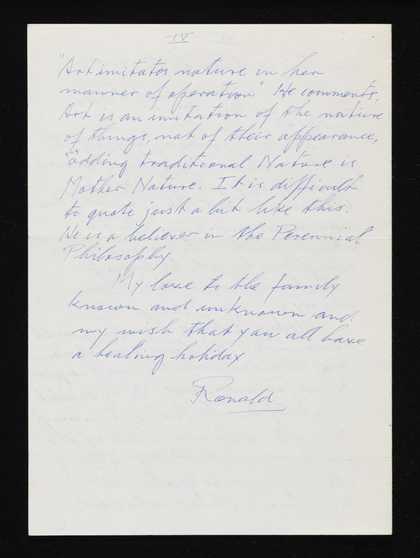 -IV-
"Art imitates nature in her
manner of operation" He comments,
Art is an imitation of the nature
of things, not of their appearance,
adding traditional Nature is
Mother Nature. It is difficult
to quote just a bit like this.
He is a believer in the Perennial
Philosophy
My love to the family
known and unknown and
my wish that you all have
a healing holiday
Ronald